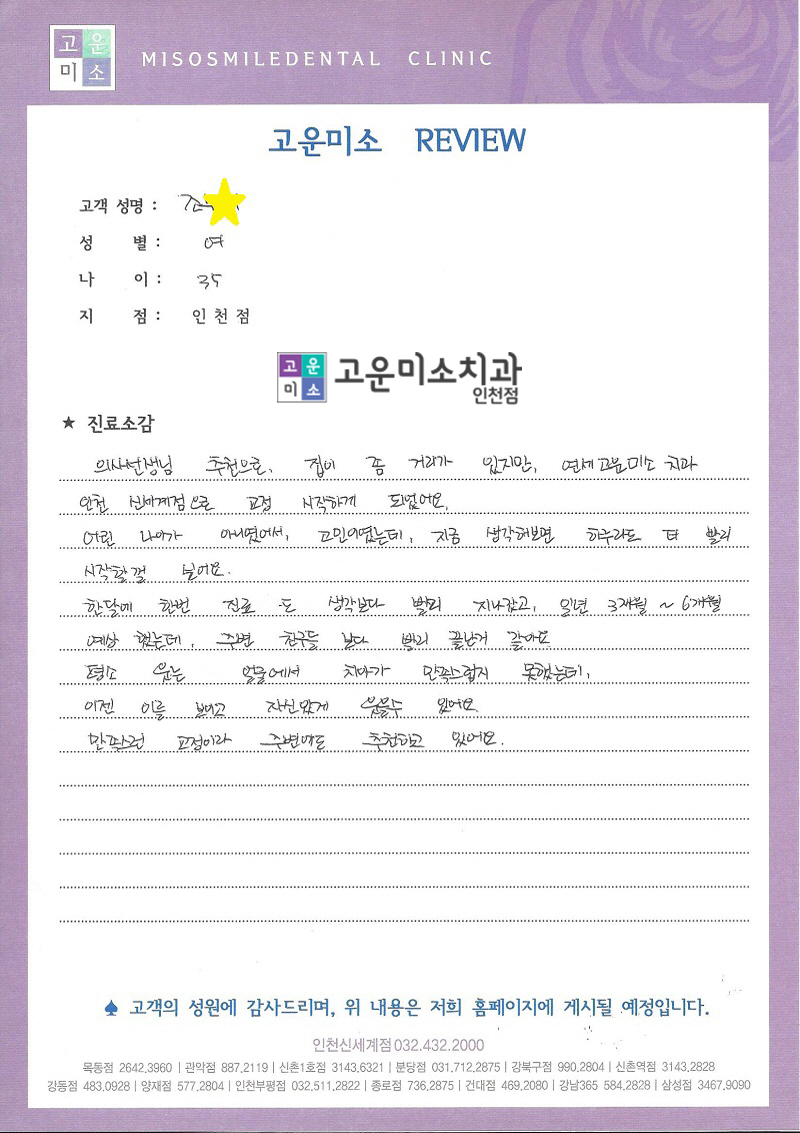 고운
미소
MISOSMILEDENTAL CLINIC
고운미소 REVIEW
고객 성명 : 조
성 별 : 여
나 이 : 35
지 점 : 인천점
고운
미소
고운미소치과
인천점
★ 진료소감
의사선생님 추천으로, 집이 좀 거리가 있지만, 연세고운미소 치과
인천 신세계점으로 교정 시작하게 되었어요.
어린 나이가 아니였어서, 고민이였는데, 지금 생각해보면 하루라도 더 빨리
시작할껄 싶어요.
한달에 한번 진료도 생각보다 빨리 지나갔고, 일년 3개월 ~ 6개월
예상했는데, 주변 친구들 보다 빨리 끝난거 같아요
평소 웃는 얼굴에서 치아가 만족스럽지 못했는데,
이젠 이를 보이고 자신있게 웃을수 있어요.
만족스런 교정이라 주변에도 추천하고 있어요.
♠ 고객의 성원에 감사드리며, 위 내용은 저희 홈페이지에 게시될 예정입니다.
인천신세계점 032.432.2000
목동점 2642,3960 | 관악점 887,2119 | 신촌1호점 3143,6321 | 분당점 031,712,2875 | 강북구점 990,2804 | 신촌역점 3143,2828
강동점 483,0928 | 양재점 577,2804 | 인천부평점 032,511,2822 | 종로점 736,2875 | 건대점 469,2080 | 강남365 584,2828 | 삼성점 3467,9090